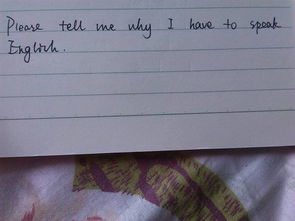 Please tell me why I have to speak
English.